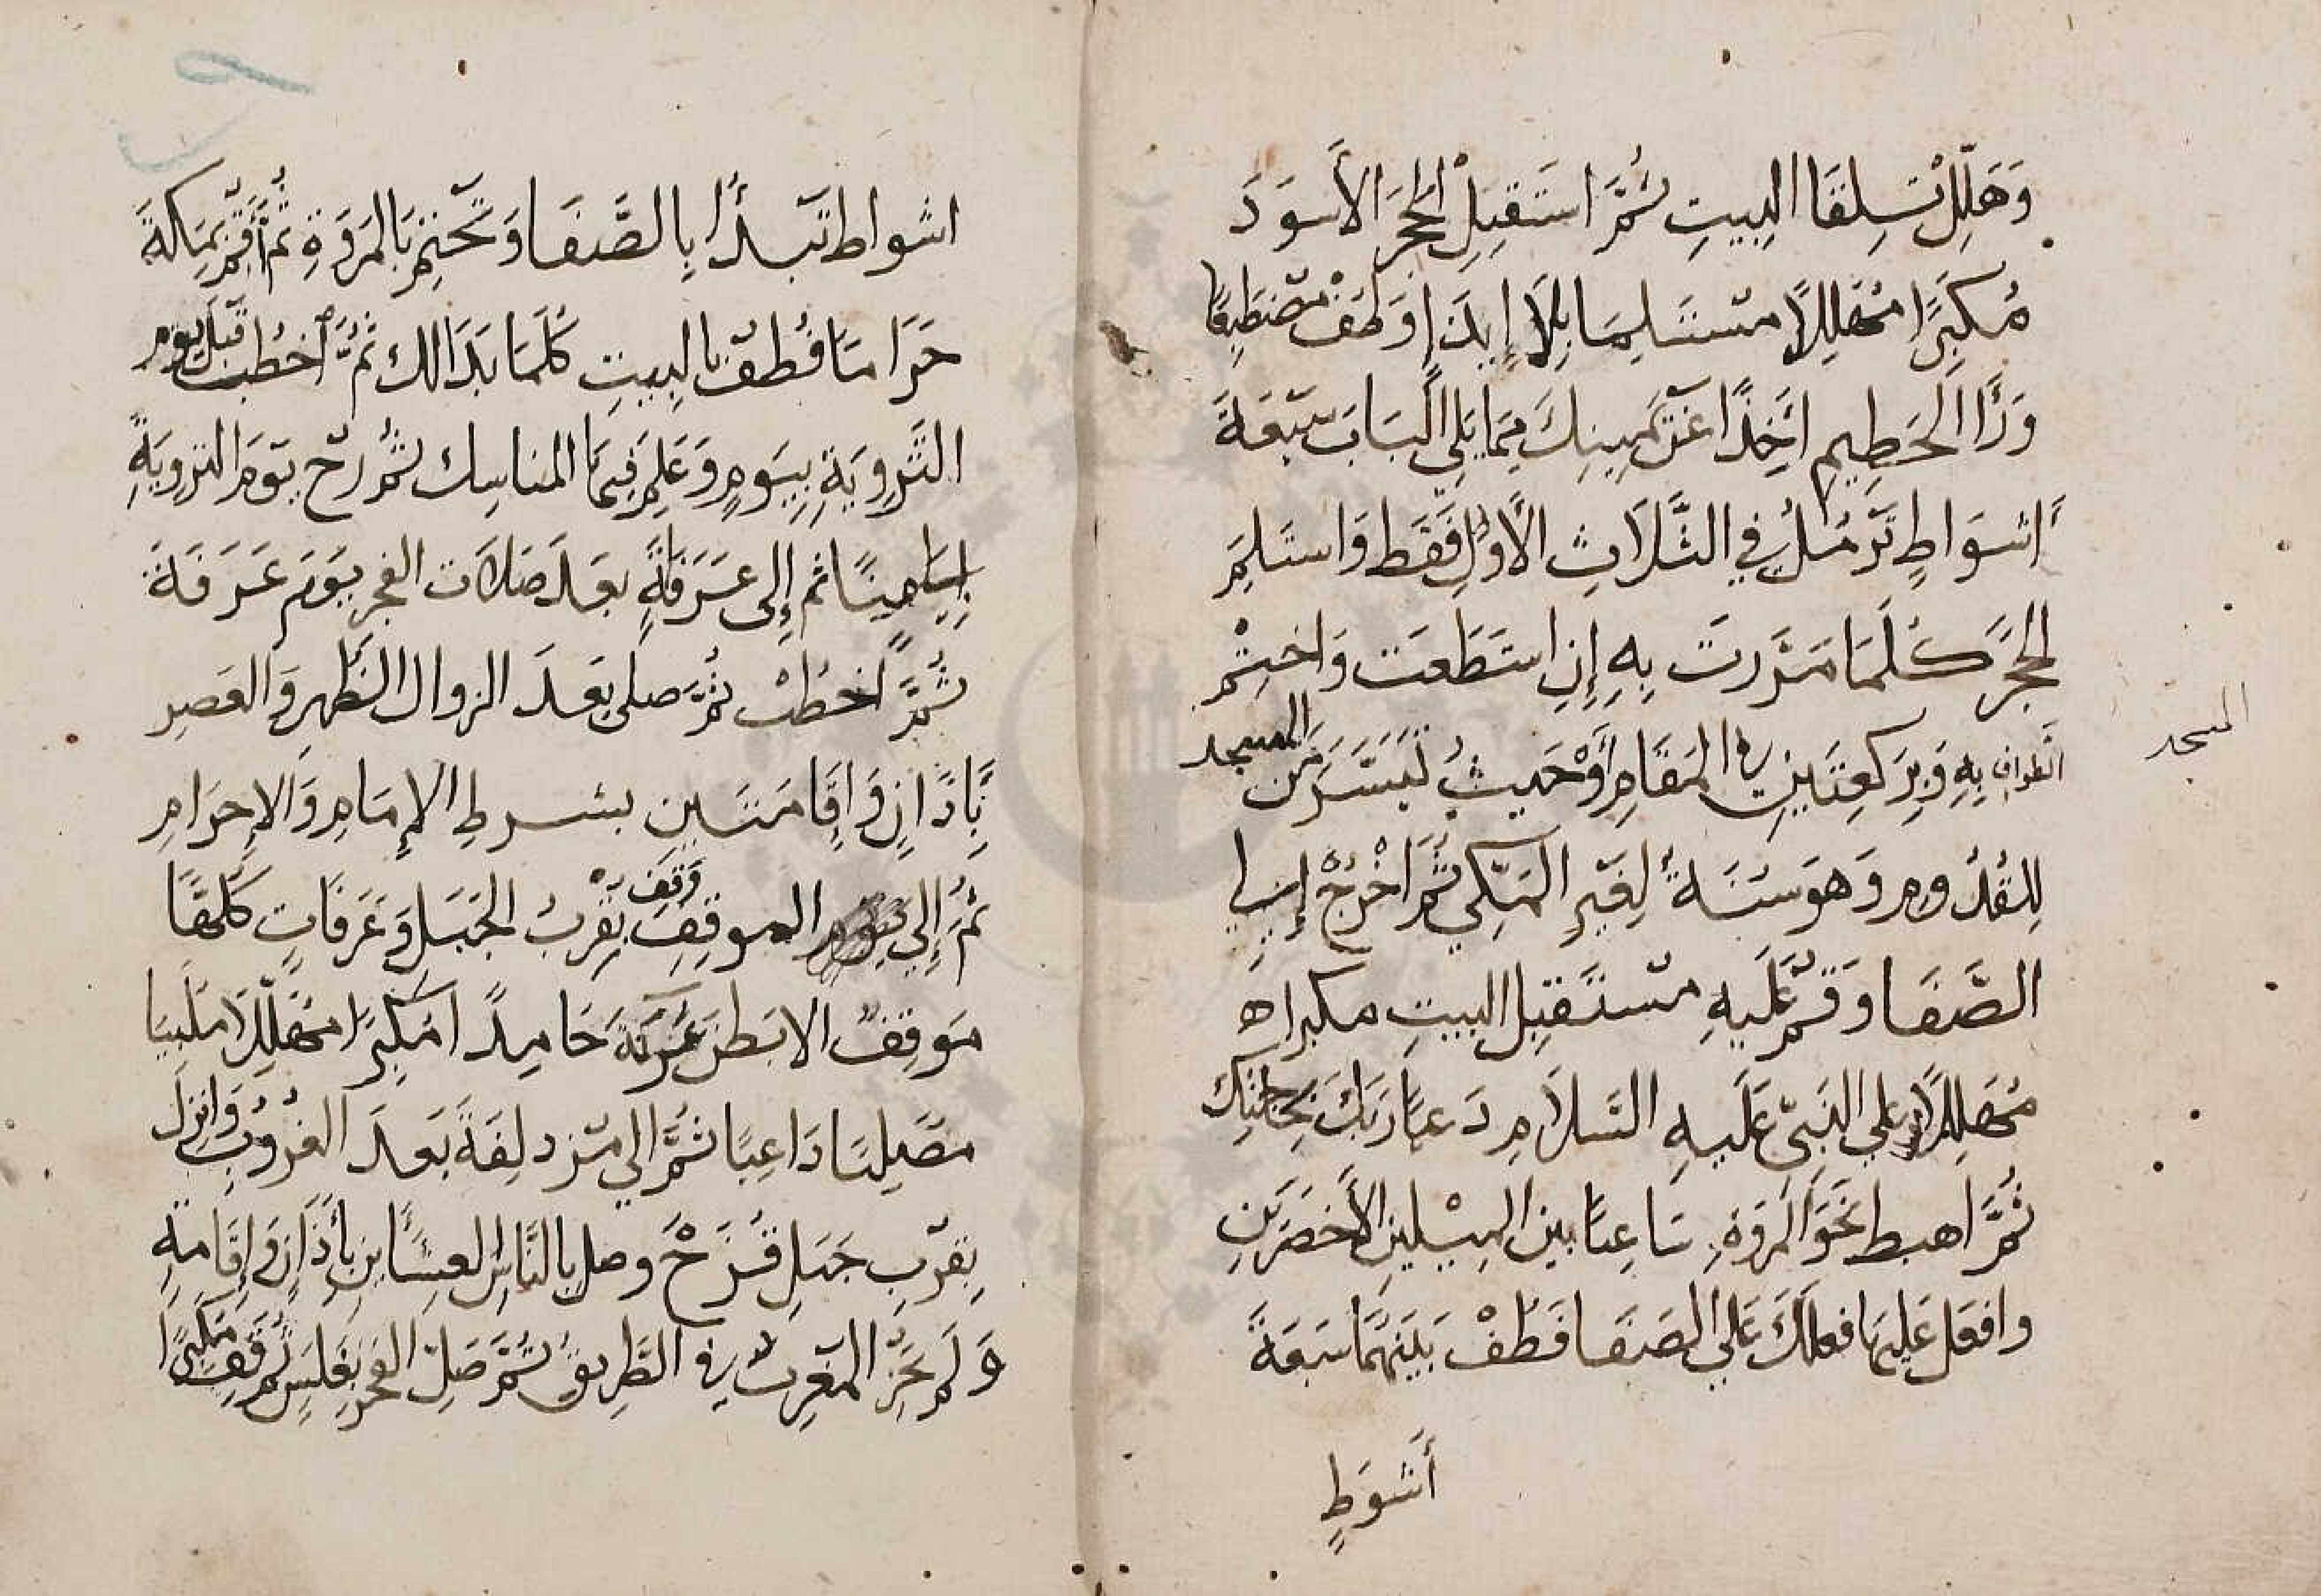 وَهَلِّلْ تِلِقَا البِيتِ ثُمَّ اسَتَقِبِلِ الْحَجَرَ الأَسوَدَ
مُكَبِّرًا مُهَلِلًا مسْتَلِمَا بِلَا إِيذَاءٍ وَطُفْ مضْطَبِعًا
وَرَأَا الحَطِيمِ اخِذًا عَنْ يَمِينِكَ مِمَا يَلِي البَابَ سَبْعَةَ
أَشوَاطٍ تَرْمُلُ فِي الثَّلَاثِ الأُوَلِ فَقَط وَاستَلِمِ
الحَجَرَ كُلَمَا مَرَرتَ بِهِ إِنِ استَطَعتَ وَاختِمْ
الطوافِ بِهِ وَبِرَكعِتَينِ فِي المَقَامِ أَوْ حَيثُ تَيَسَّرَ مَن المسجد
المسجد
لِلقُدُومِ وَهوَ سنَةُ لِغَيِر المَكِّي ثُمَ اخْرُجْ إِلِي
الصَّفَا وَقُمْ عَلَيهِ مسْتَقبِلَ البيتِ مكبراه
مُهَلِلًا علي النَبِيّ عَلَيهِ السَّلَامِ دَعيًا رَبَكَ بِحَاجَتِكَ
ثُمَّ اهبط نَحَوَ المَروَةِ سَاعِيًا بين المِيْلينِ الأَخضَرَينِ
وافعَل عَلِيهَا فعلَكَ عَلَي الصَفَا فَطُفْ بَيْنَهُمَا سَبعَةَ
أَشوَطٍ
اشواط تَبْدأُ ابِالصَّفَا وَتَختِمْ بَالمَروَةِ ثم أَقِمْ بِمَكةَ
حَرَامًا فُطفْ بالبِيتِ كُلَمَا بَدَالك ثُمَّ أخطُب قَبلَ يَومِ
التَروِيَةِ بِيَومٍ وَعَلِمْ فِيهَا المناسِك ثُمَ رحْ يَومَ التروِيَةِ
إِلَى مِنًا ثم إِلى عَرَفَاةٍ بعَدَ صَلاَت الفجرِ يَوَمَ عَرَفَةَ
ثُمَّ اخطُبْ ثُمَّ صلي بَعَدَ الزوال الظهرِ وَالعَصِرِ
بِأَذَانٍ وَإِقَامَتَينِ بشرطِ الإِمَامِ وَالاِحرَامِ
ثُمَ إِلِي الموقِفِ وَقِفْ بِقُربُ الجَبَلِ وَعَرَفَاتٍ كُلُهَا
مَوقِفْ الا بَطنَ عُرَنَةَ حَامِدًا مكَبِرًا مُهَلِّلًا ملَبِيَا
مصَلِيًا دَاعِيًا ثُمَّ الي مزدلِفَةَ بَعدَ الغُرُوبِ وَانزِل
بِقُرْبِ جَبَلِ قُزَحْ وصل بالنَّاسِ العِشَاءينِ بأذَانٍ وَإِقَامةٍ
وَلَم تَجُزِ المغْرِبُ فِي الطَّرِيقِ ثُمَّ صَلِّ الفَجْرَ بِغَلَسٍ ثُمَ قِف مكَبِرًا